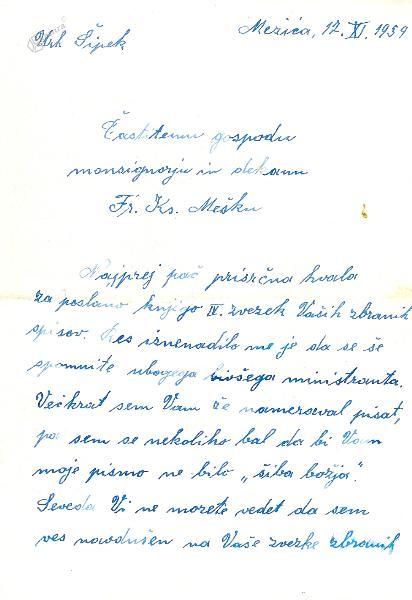 Mežica, 17. XI. 1959
Urh Šipek
Častitemu gospodu
monsignorju in dekanu
Fr. Ks. Mešku
Najprej pač prisrčna hvala
za poslano knjigo IV. zvezek Vaših zbranih
spisov. Res iznenadilo me je da se še
spomnite ubogega bivšega ministranta.
Večkrat sem Vam že nameraval pisat,
pa sem se nekoliko bal da bi Vam
moje pismo ne bilo „šiba božja".
Seveda Vi ne morete vedet da sem
ves navdušen na Vaše zvezke zbranih